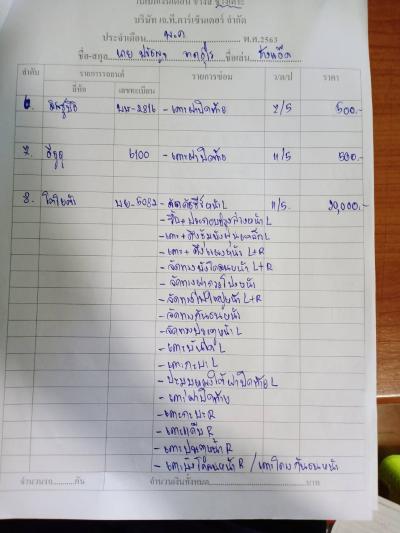 บริษัท เจ.ที.คาร์เซ็นเตอร์ จำกัด
ประจำเดือน พ.ค พ.ศ.2563
ชื่อ-สกุล นาย ชื่อเล่น
ลำดับ รายการรถยนต์ รายการซ่อม ว/ด/ป ราคา
ยี่ห้อ เลขทะเบียน
6. มิตซูบิชิ -2816 - เคาะฝาปิดท้าย 2/5 500.-
7. อีซูซุ 6100 - เคาะฝาปิดท้าย 11/5 500.-
8. โตโยต้า -5082 - L 11/5 20,000.-
- รื้อ + ประกอบช่วงล่างหน้า L
- เคาะ + L
- เคาะ + L+R
- จัดทางบังโคลนหน้า L+R
- จัดทางฝากระโปรงหน้า
- จัดทางไฟใหญ่หน้า L+R
- จัดทางกันชนหน้า
- จัดทางประตูหน้า L
- เคาะบันได L
- เคาะกะบะ L
- ฝาปิดท้าย L
- เคาะฝาปิดท้าย
- เคาะกะบะ R
- เคาะแค็บ R
- เคาะประตูหน้า R
- เคาะบังโคลนหน้า R / กันชนหน้า
จำนวนรถ..........คัน จำนวนเงินทั้งหมด..............................บาท